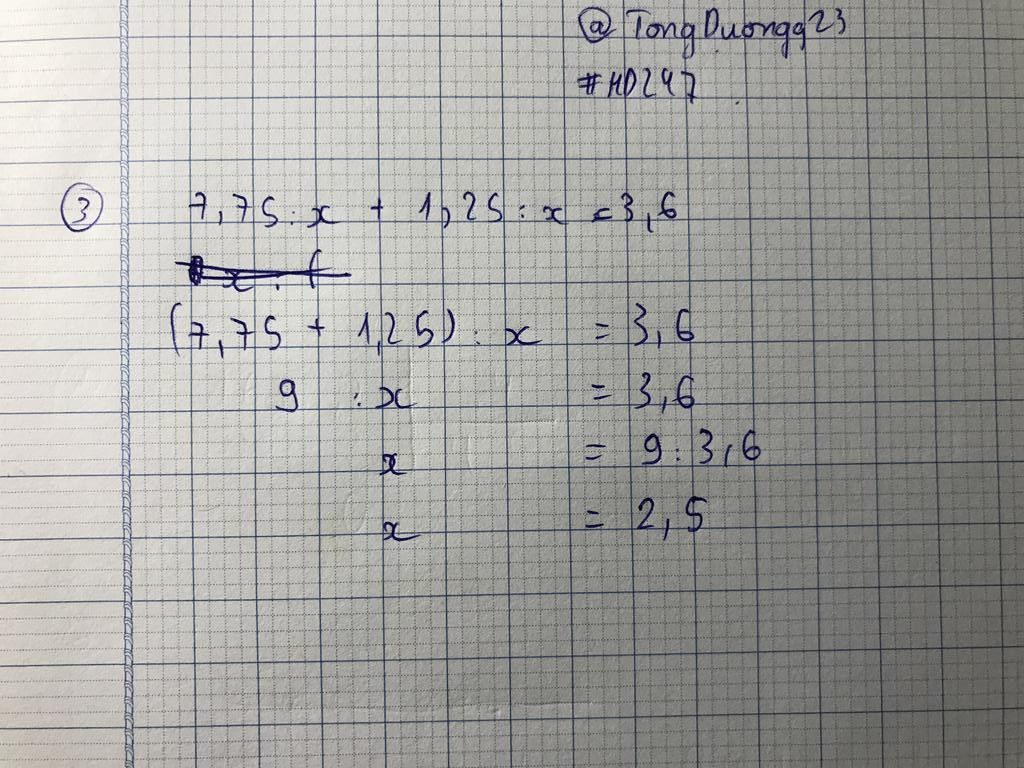 @TongDuongg23
#HD247
③ 7,75 : x + 1,25 : x = 3,6
(7,75 + 1,25) : x = 3,6
9 : x = 3,6
x = 9 : 3,6
x = 2,5